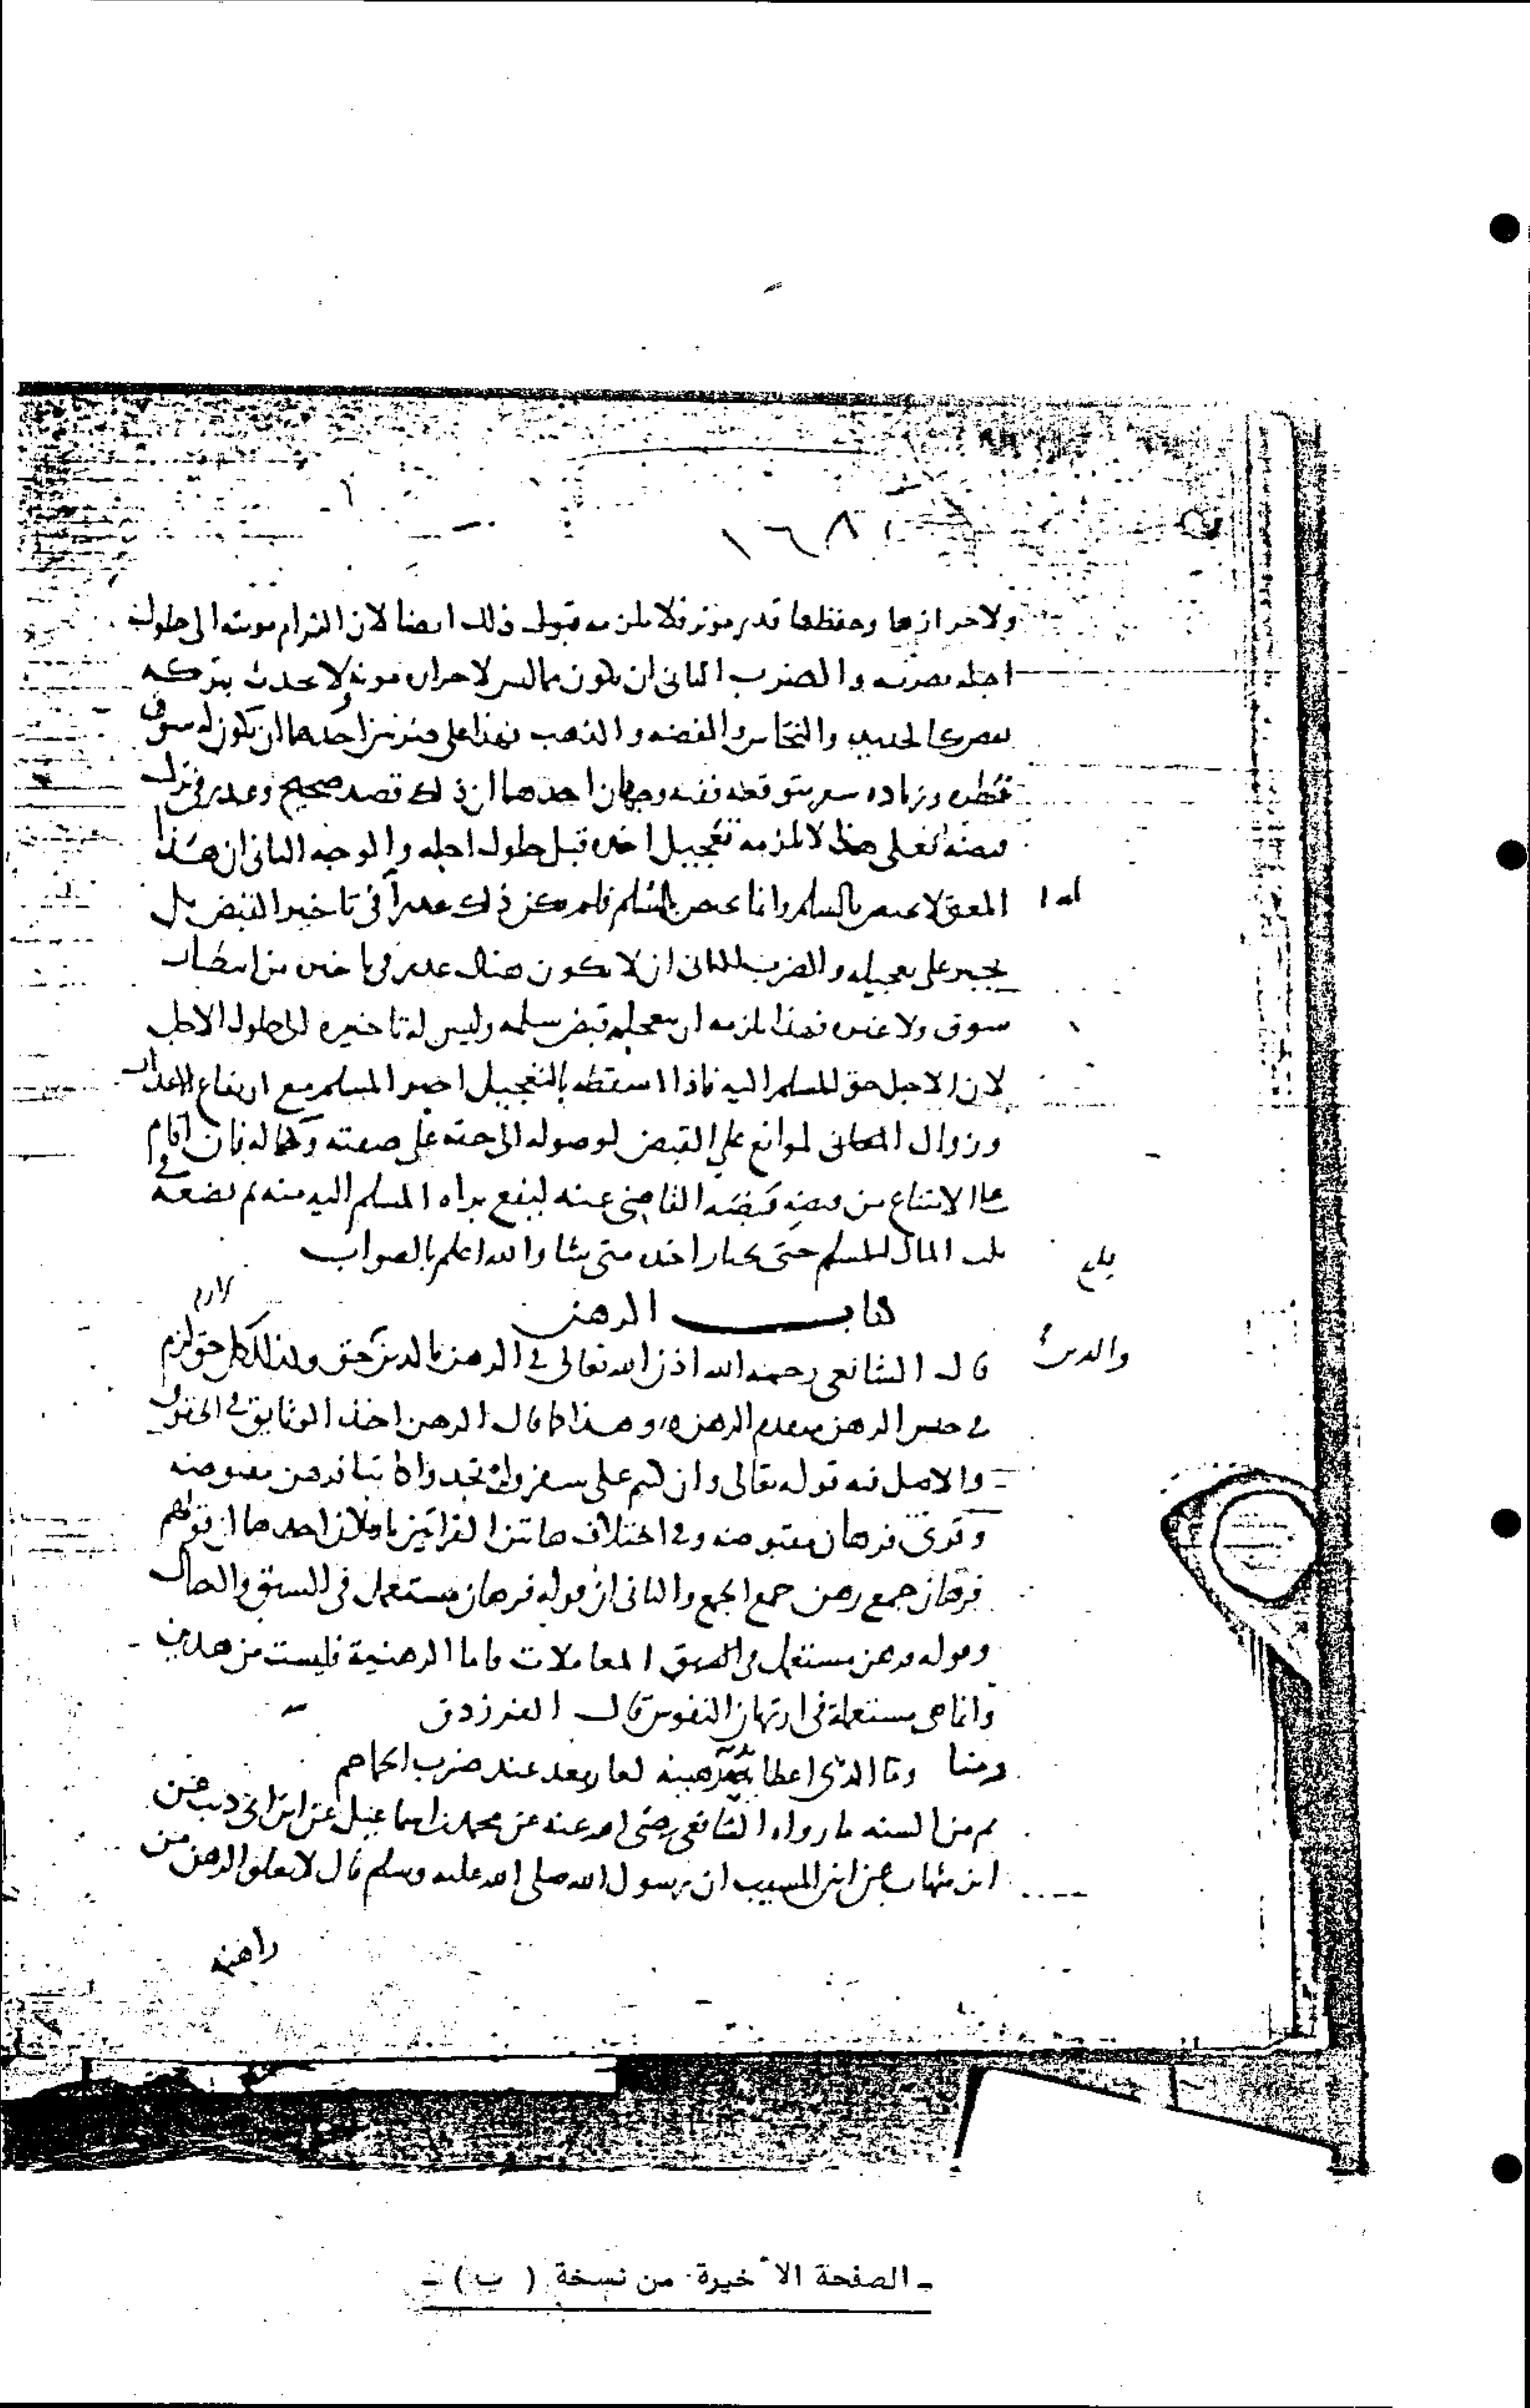 ١٦٨
ولاحرازها وحفظها قدر مونه فلا يلزمه قبول ذلك ايضا لان التزام مونته الى حلول
اجله والضرب الثاني ان يكون مما ليس لاحرازه مونة ولا يحدث بتركه
كالحديد والنحاس والفضه والذهب فهذا على ضربين احدهما ان يكون له سوق
وزياده سعر يتوقعه ففيه وجهان احدهما ان ذلك قصد صحيح وعذر في ترك
قبضه فعلى هذا لا يلزمه تعجيل اخذه قبل حلول اجله والوجه الثاني ان هذا
المعنى لا يختص بالسلم وانما يختص بالمسلم فلم يكن ذلك عذرا في تاخير القبض بل
لما
يجبر على تعجيله والضرب الثاني ان لا يكون هناك عذر في تاخيره من انتظار
سوق ولا غيره فهذا يلزمه ان يتعجله قبض سلمه وليس له تاخيره الى حلول الاجل
لان الاجل حق للمسلم اليه فاذا اسقطه بالتعجيل اجبر المسلم مع ارتفاع الاعذار
وزوال المعاني الموانع على القبض لوصوله الى حقه على صفته وكماله فان اقام
على الامتناع من قبضه قبضه القاضي عنه ليقع براه المسلم اليه منه ثم يضعه في
بيت المال للمسلم حتى يختار اخذه متى شا والله اعلم بالصواب
بلغ
كتاب الرهن
لازم
قال الشافعي رحمه الله اذن الله تعالى في الرهن بالدين حق وكذلك كل حق لزم
والدين
في حين الرهن الرهن وهذا كما قال الرهن اخذ الوثايق في الحقوق
والاصل فيه قوله تعالى وان كنتم على سفر ولم تجدوا كاتبا فرهن مقبوضه
وقرى فرهان مقبوضه وفي اختلاف هاتين القراتين تاويلان احدهما ان قولهم
فرهان جمع رهن جمع الجمع والثاني ان قوله فرهان مستعمل في السبق والنضال
وقوله فرهن مستعمل في المعاملات فاما الرهنية فليست من هذين
وانما هي مستعملة في ارتهان النفوس قال الفرزدق
ومنا الذي اعطا رهينه لغار معد عند ضرب الجماجم
ثم من السنه ما رواه الشافعي رضي الله عنه عن محمد بن اسماعيل عن ابن ابي ذيب عن
ابن شهاب عن ابن المسيب ان رسول الله صلى الله عليه وسلم قال لا يغلق الرهن من
راهنه
ـ الصفحة الأخيرة من نسخة ( ب ) ـ